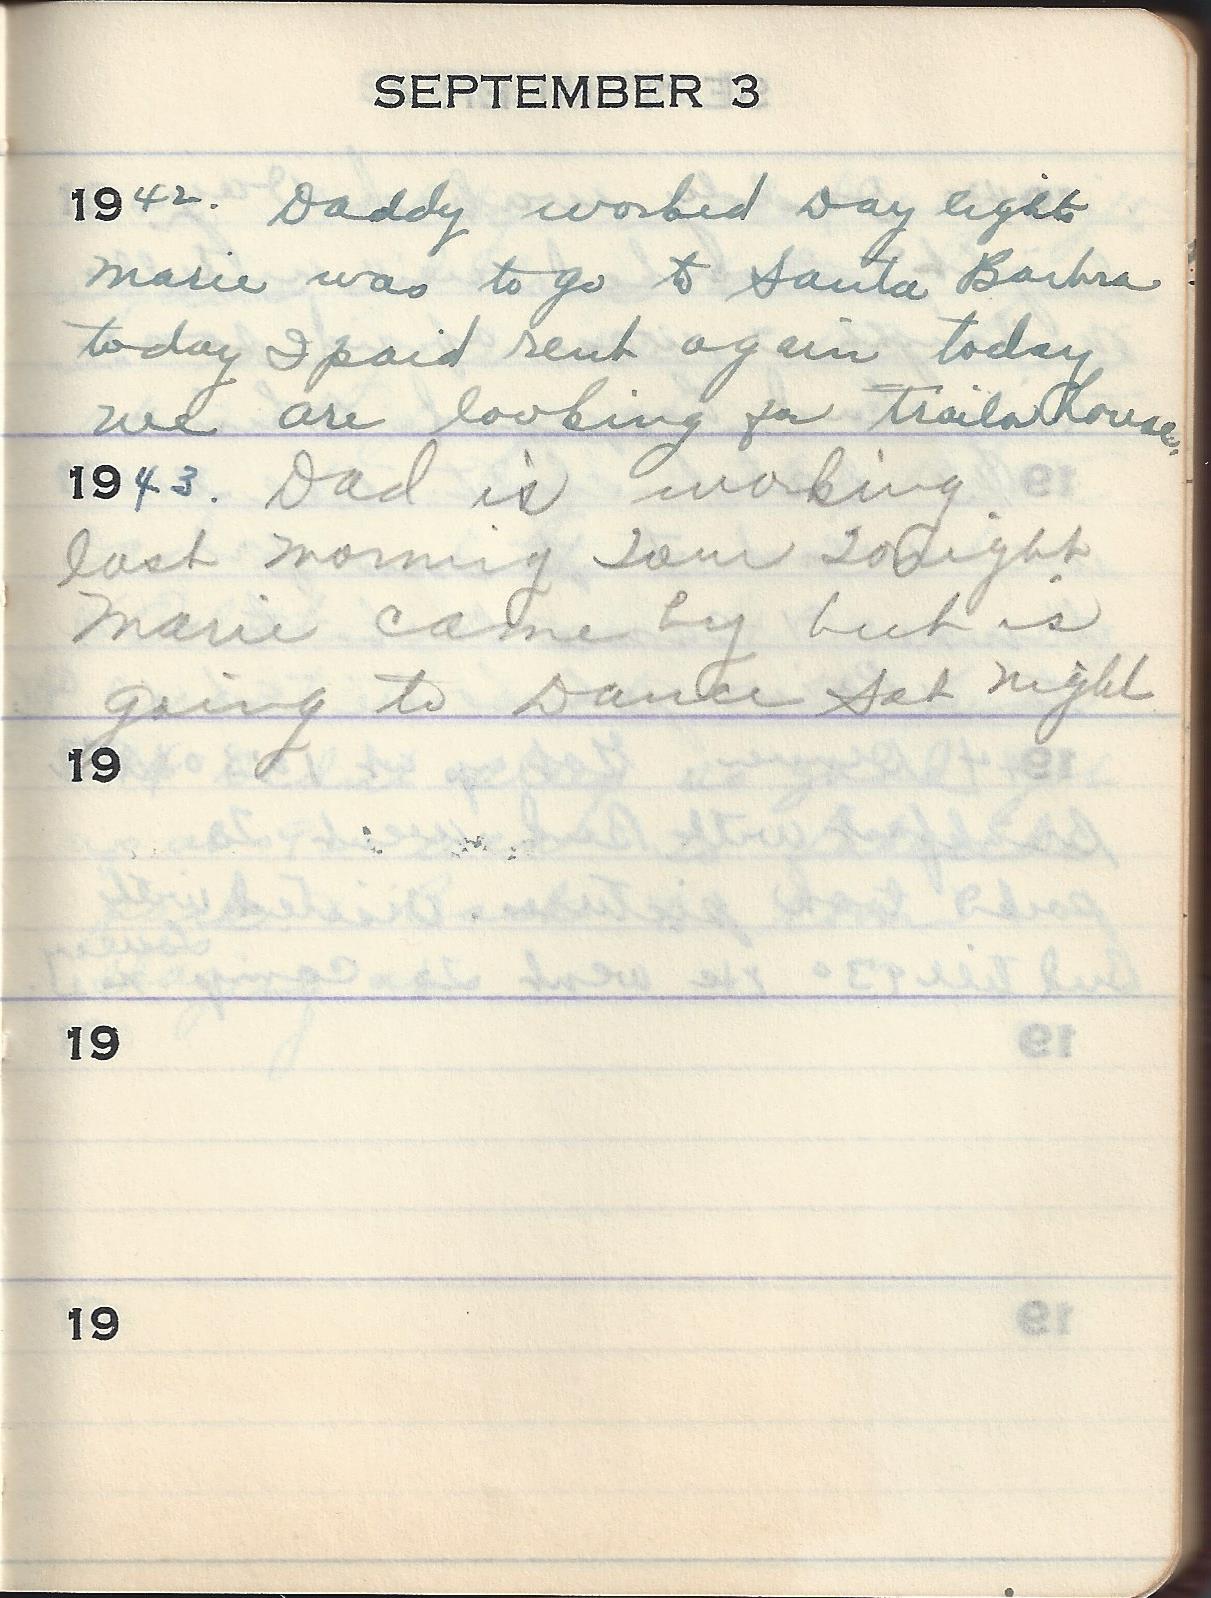 SEPTEMBER 3
1942. Daddy worked Day light
Marie was to go to Santa Barbra
today I paid rent again today
we are looking for trailer house.
1943. Dad is working
last morning Tour Tonight
Marie came by but is
going to Dance Sat night
19
19
19